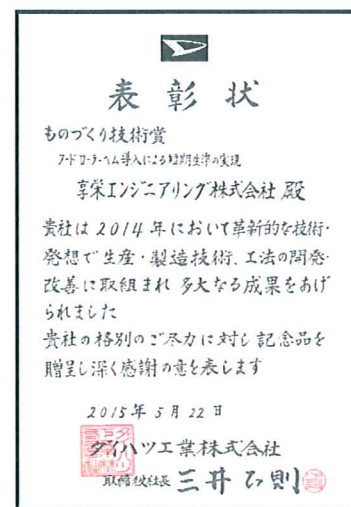 表彰状
ものづくり技術賞
フードローラーヘム導入による短期生準の実現
享栄エンジニアリング株式会社 殿
貴社は2014年において革新的な技術・
発想で生産・製造技術、工法の開発・
改善に取組まれ 多大なる成果をあげ
られました
貴社の格別のご尽力に対し記念品を
贈呈し深く感謝の意を表します
2015年5月22日
ダイハツ工業株式会社
取締役社長 三井正則